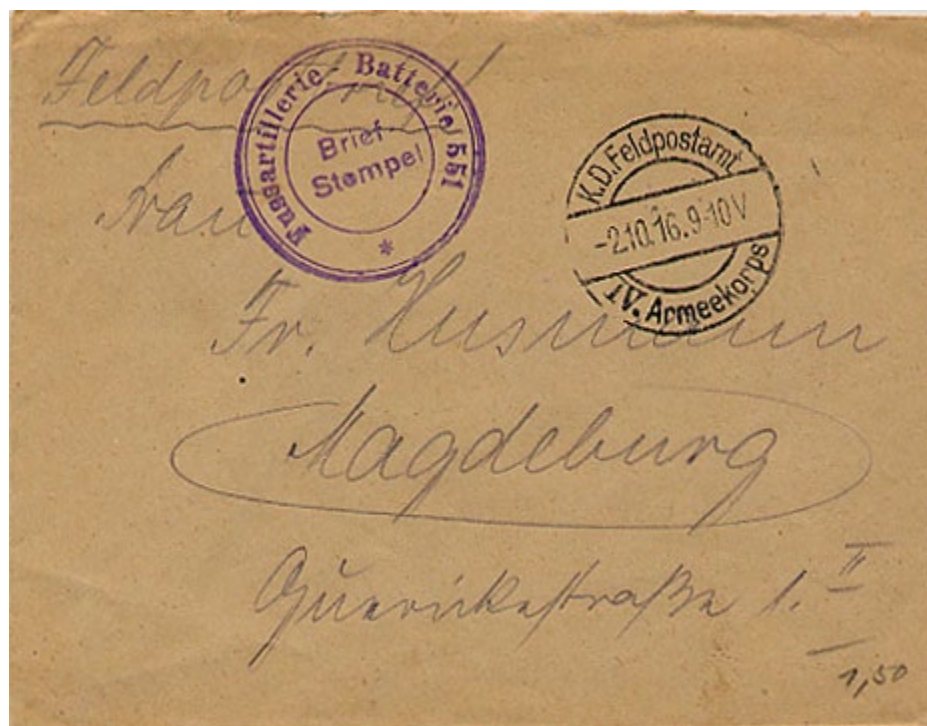 Feldpostbrief
Fussartillerie-Batterie 551
Brief-
Stempel
*
K.D.Feldpostamt
-2.10.16.9-10V
IV. Armeekorps
Frau
Fr. Husmann
Magdeburg
Guerickestraße 1. II
1,50